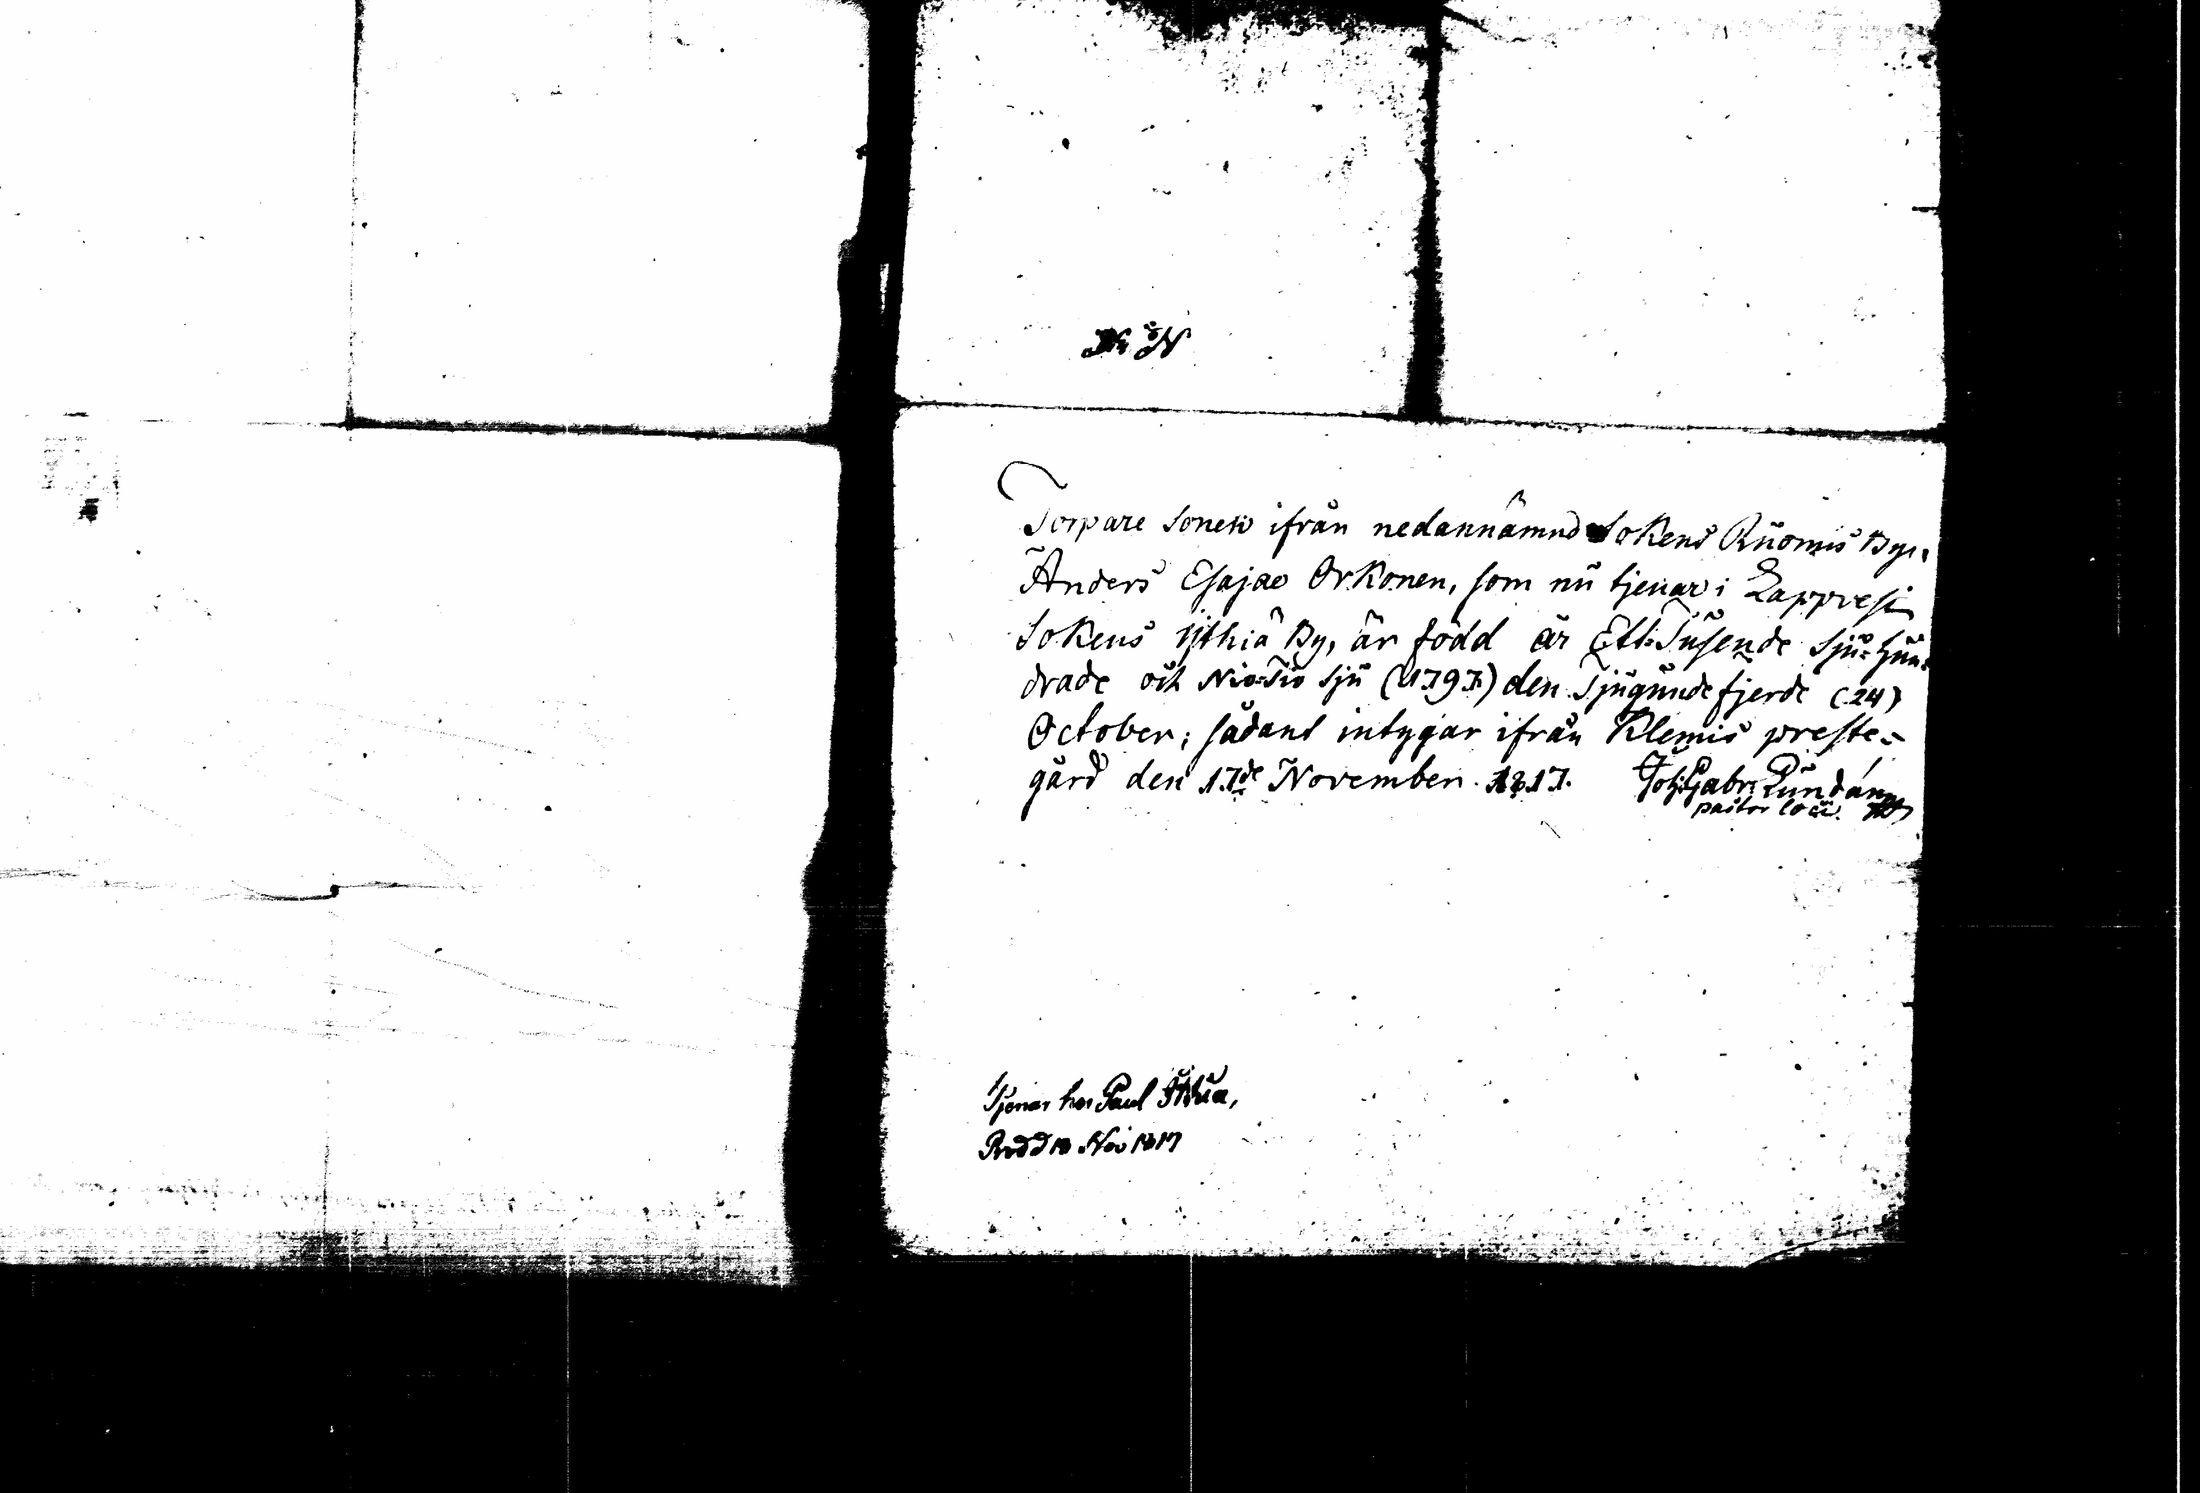 Torpare Sonen ifrån nedannämnd Sokens Ruomis By,
Anders Esajae Orkonen, som nu tjenar i Lappvesi
Sokens By, är född år Ett-Tusende Sju-Hun-
drade och Nio-Tio Sju (1797) den Tjugunde fjerde (24)
October; sådant intygar ifrån Klemis preste-
gård den 17de November 1817. Joh: Gabr:
pastor loci.
Tjenar hos Paul
18 Nov 1817